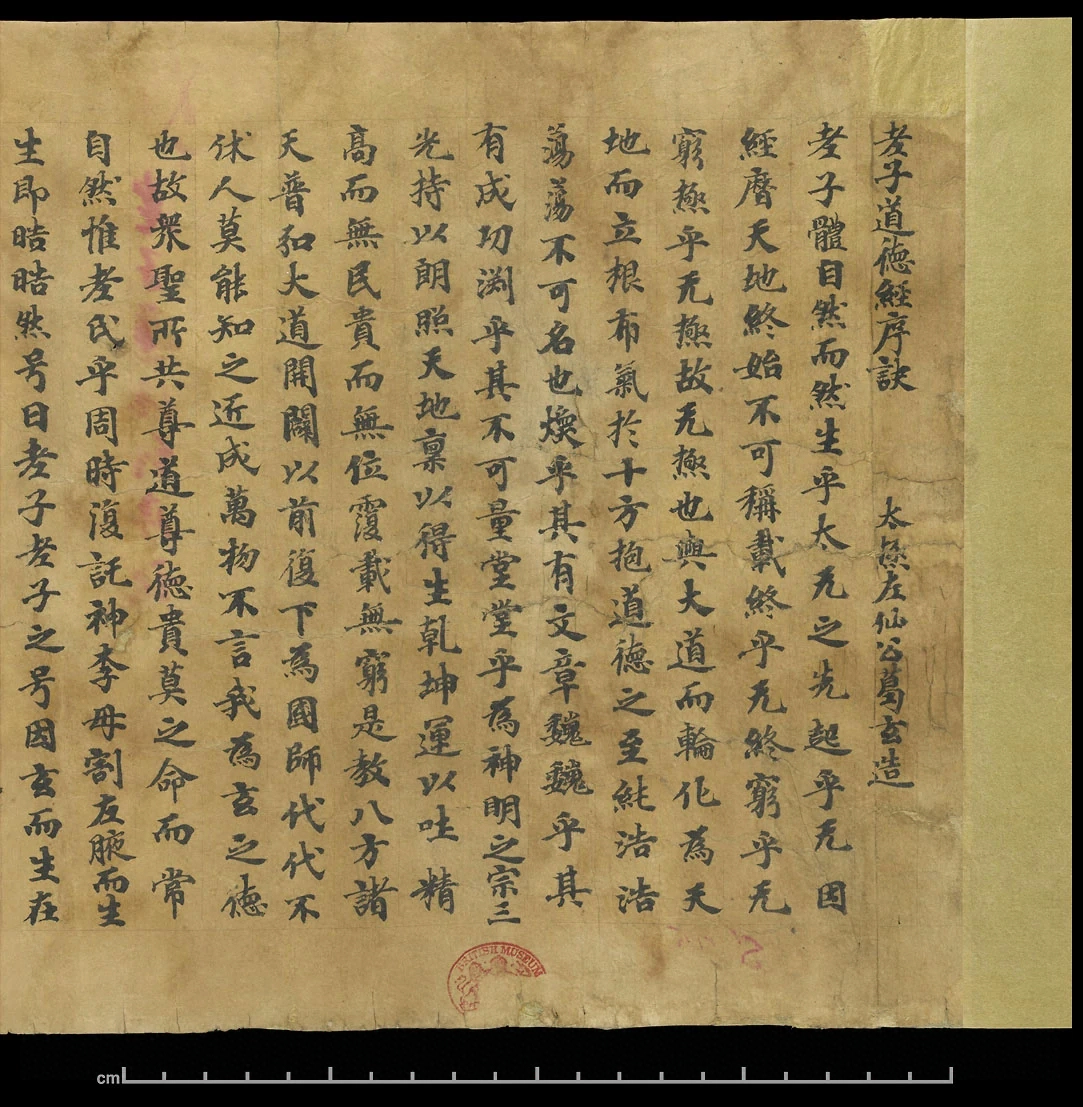 老子道德經序訣 太極左仙公葛玄造
老子體自然而然生乎太无之先起乎无因
經曆天地終始不可稱載終乎无終窮乎无
窮極乎无極故无極也與大道而輪化為天
地而立根布氣於十方抱道德之至純浩浩
蕩蕩不可名也煥乎其有文章巍巍乎其
有成功渕乎其不可量堂堂乎為神明之宗三
光持以朗照天地稟以得生乹坤運以吐精
高而無民貴而無位覆載無窮是教八方諸
天普弘大道開闢以前復下為國師代代不
休人莫能知之近成萬物不言我為玄之德
也故衆聖所共尊道尊德貴莫之命而常
自然惟老氏乎周時復託神李母割左腋而生
生即晧晧然号曰老子老子之号因玄而生在
BRITISH MUSEUM
cm